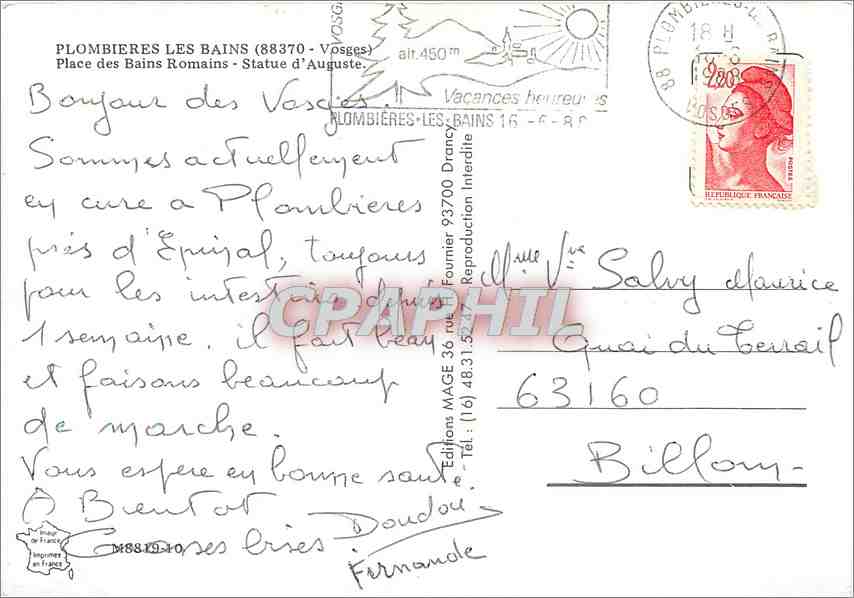 PLOMBIERES LES BAINS (88370 - Vosges)
Place des Bains Romains - Statue d'Auguste.
Bonjour des Vosges.
Sommes actuellement
en cure a Plombieres
près d'Epinal, toujours
pour les intestins depuis
1 semaine. il fait beau
et faisons beaucoup
de marche.
Vous espère en bonne santé.
A Bientot
Grosses bises.
Doudou
Fernande
Imeur
de France
Imprimée
en France
M8819-10
VOSGES
alt. 450 m
Vacances heureuses
PLOMBIÈRES-LES-BAINS 16 -6-88
88 PLOMBIERES-LES-BAINS
18 H
VOSGES
2,20
POSTES
REPUBLIQUE FRANÇAISE
Editions MAGE 36 rue H. Fournier 93700 Drancy
Tél.: (16) 48.31.52.47 - Reproduction Interdite
Mme Vve Salvy Maurice
Quai du Terrail
63160
Billom-
CPAPHIL